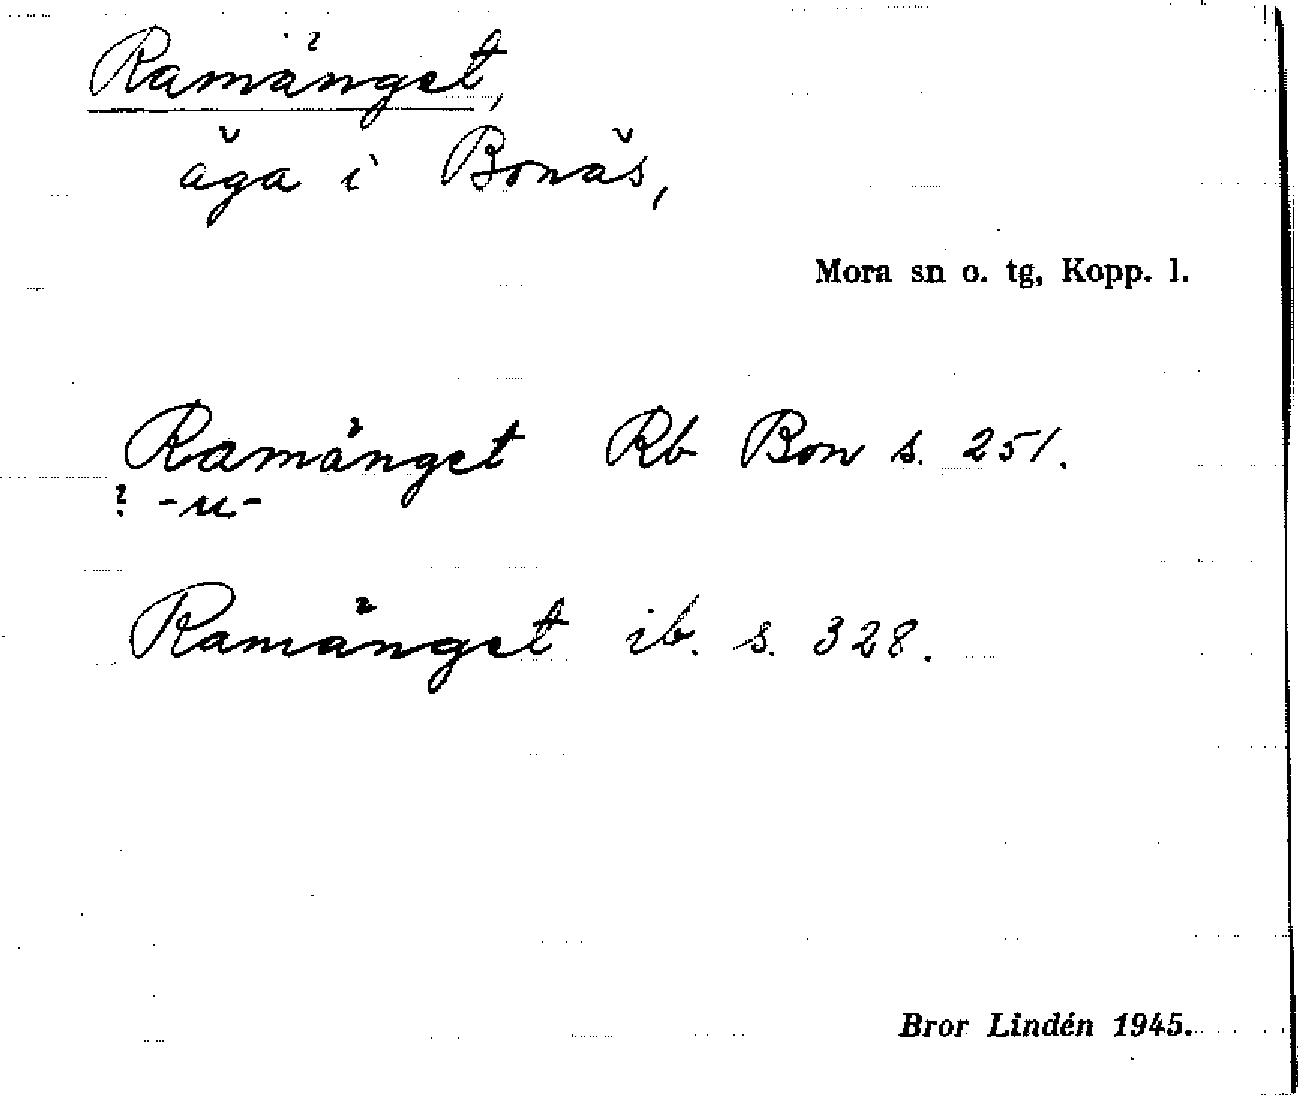 Ramänget,
äga i Bonäs,
Mora sn o. tg, Kopp. l.
Ramänget Rb Bon s. 251.
? -u-
Ramänget ib. s. 328.
Bror Lindén 1945.